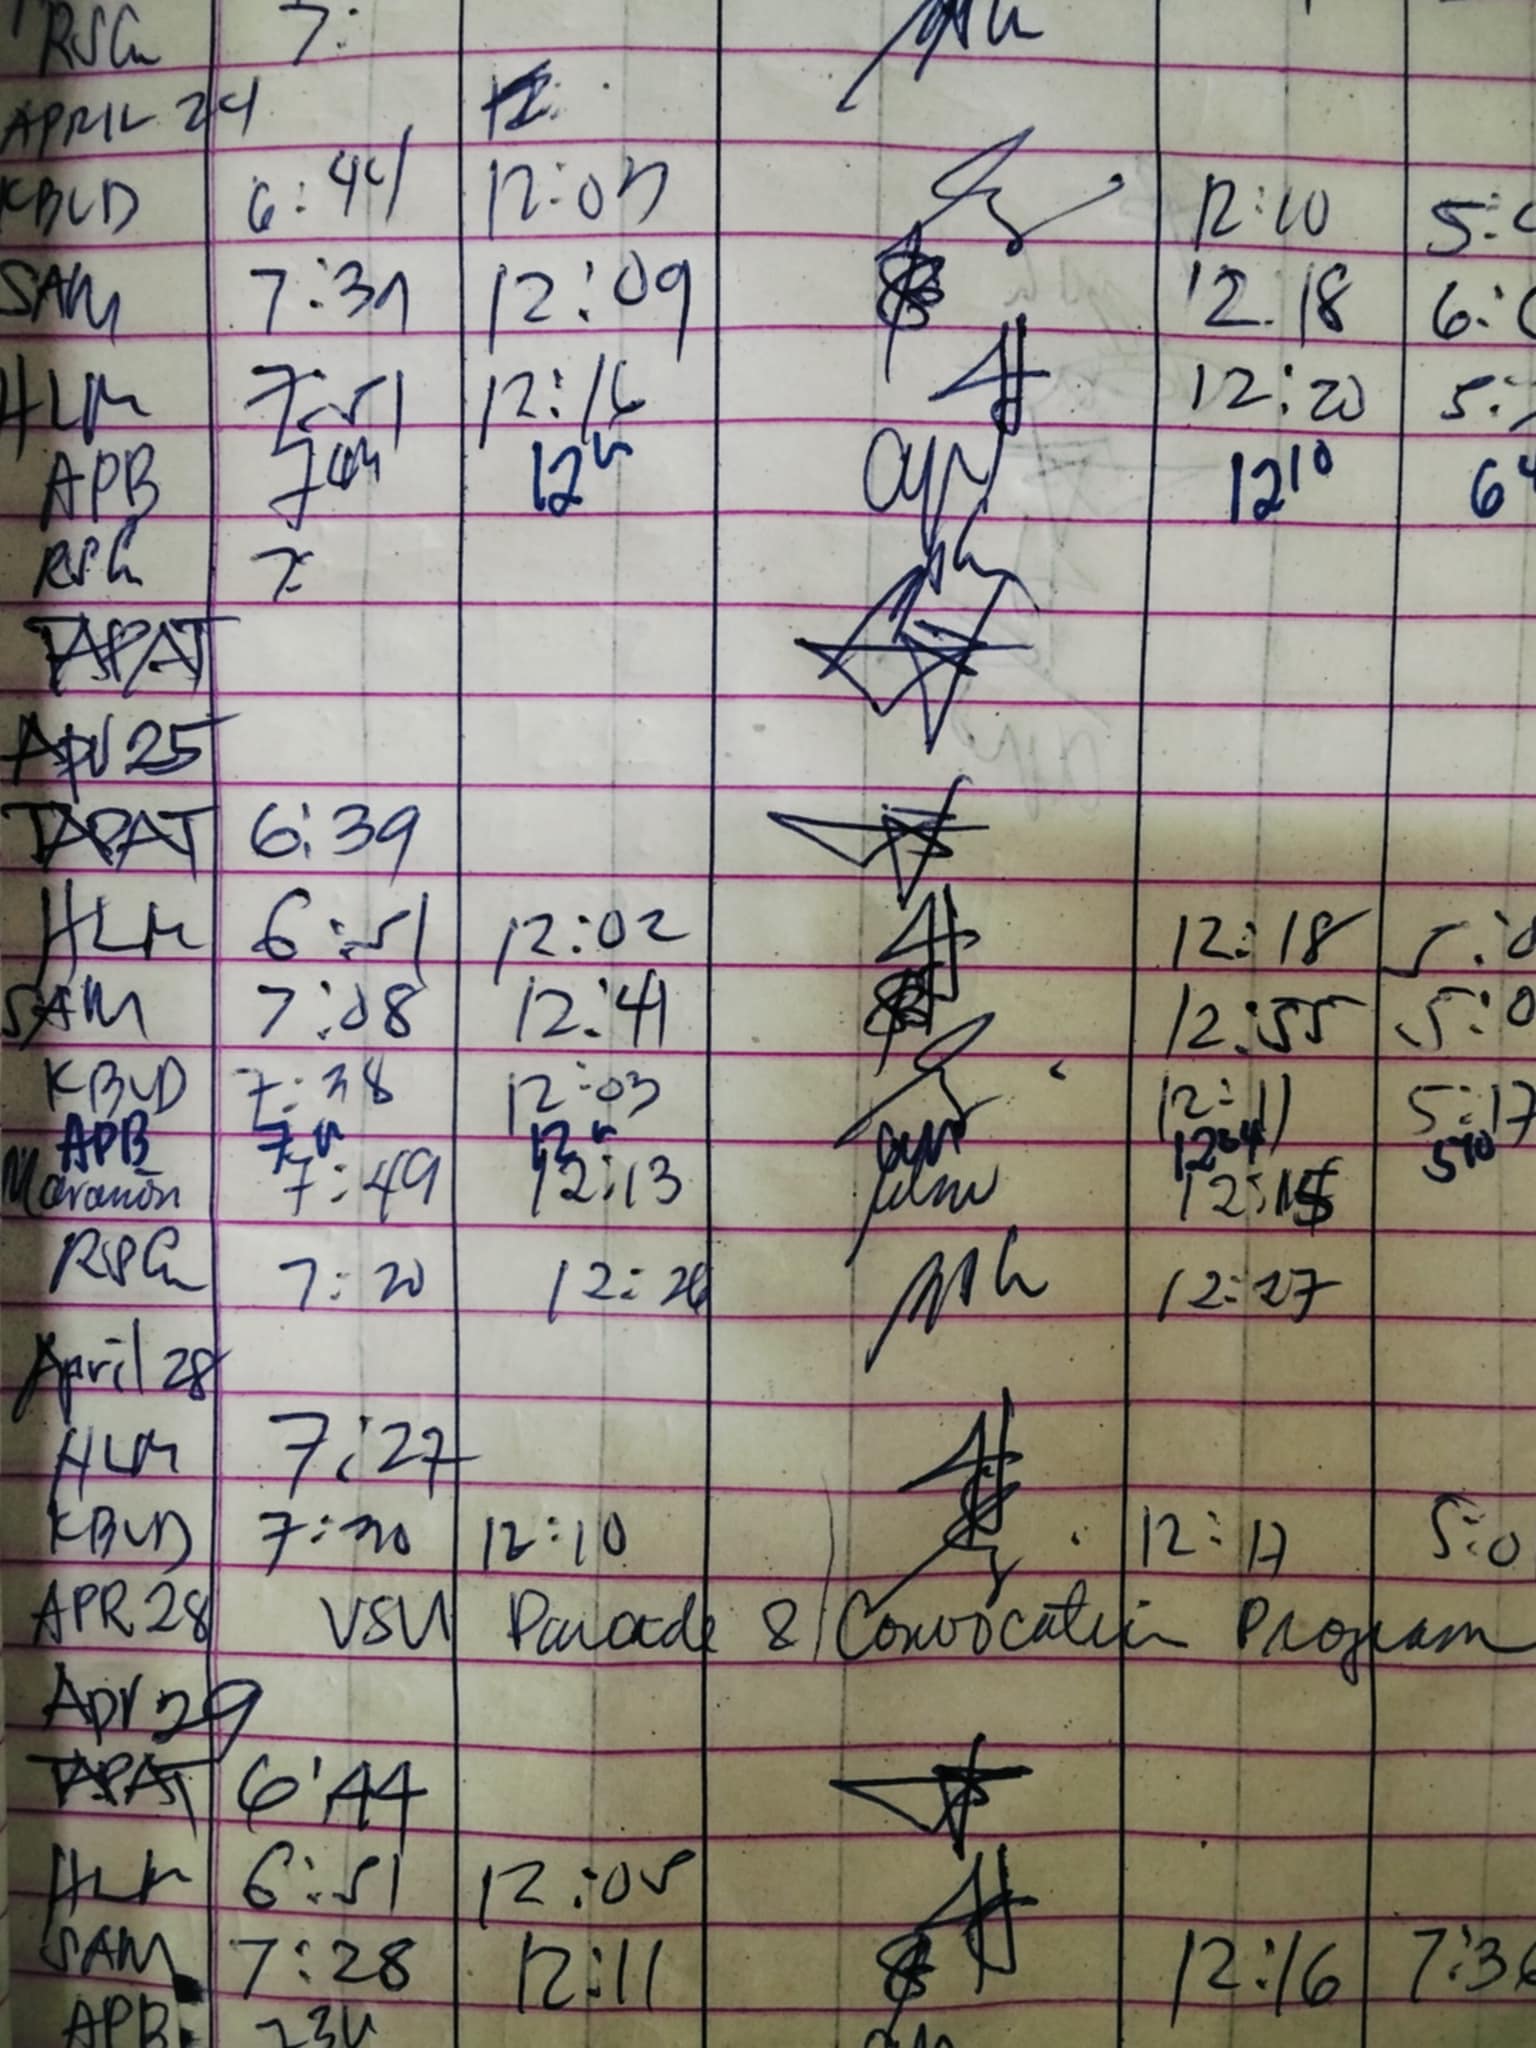 RSG 7:
APRIL 24
KBUD 6:44 12:03 12:10 5:
SAM 7:31 12:09 12.18 6:
HLM 7:51 12:16 12:20 5:
APB 12 12 10 6
RSG 7
TAPAT
Apr 25
TAPAT 6:39
HLM 6:51 12:02 12:18 5:0
SAM 7:08 12:41 12:55 5:0
KBUD 7:38 12:03 12:11 5:17
APB 7 12 12 04 5 10
Maranon 7:49 12:13 12:15
RSG 7:20 12:26 12:27
April 28
HLM 7:27
KBUD 7:30 12:10 12:17 5:0
APR 28 VSU Parade & Convocation Program
Apr 29
TAPAT 6:44
HLM 6:51 12:05
SAM 7:28 12:11 12:16 7:36
APB